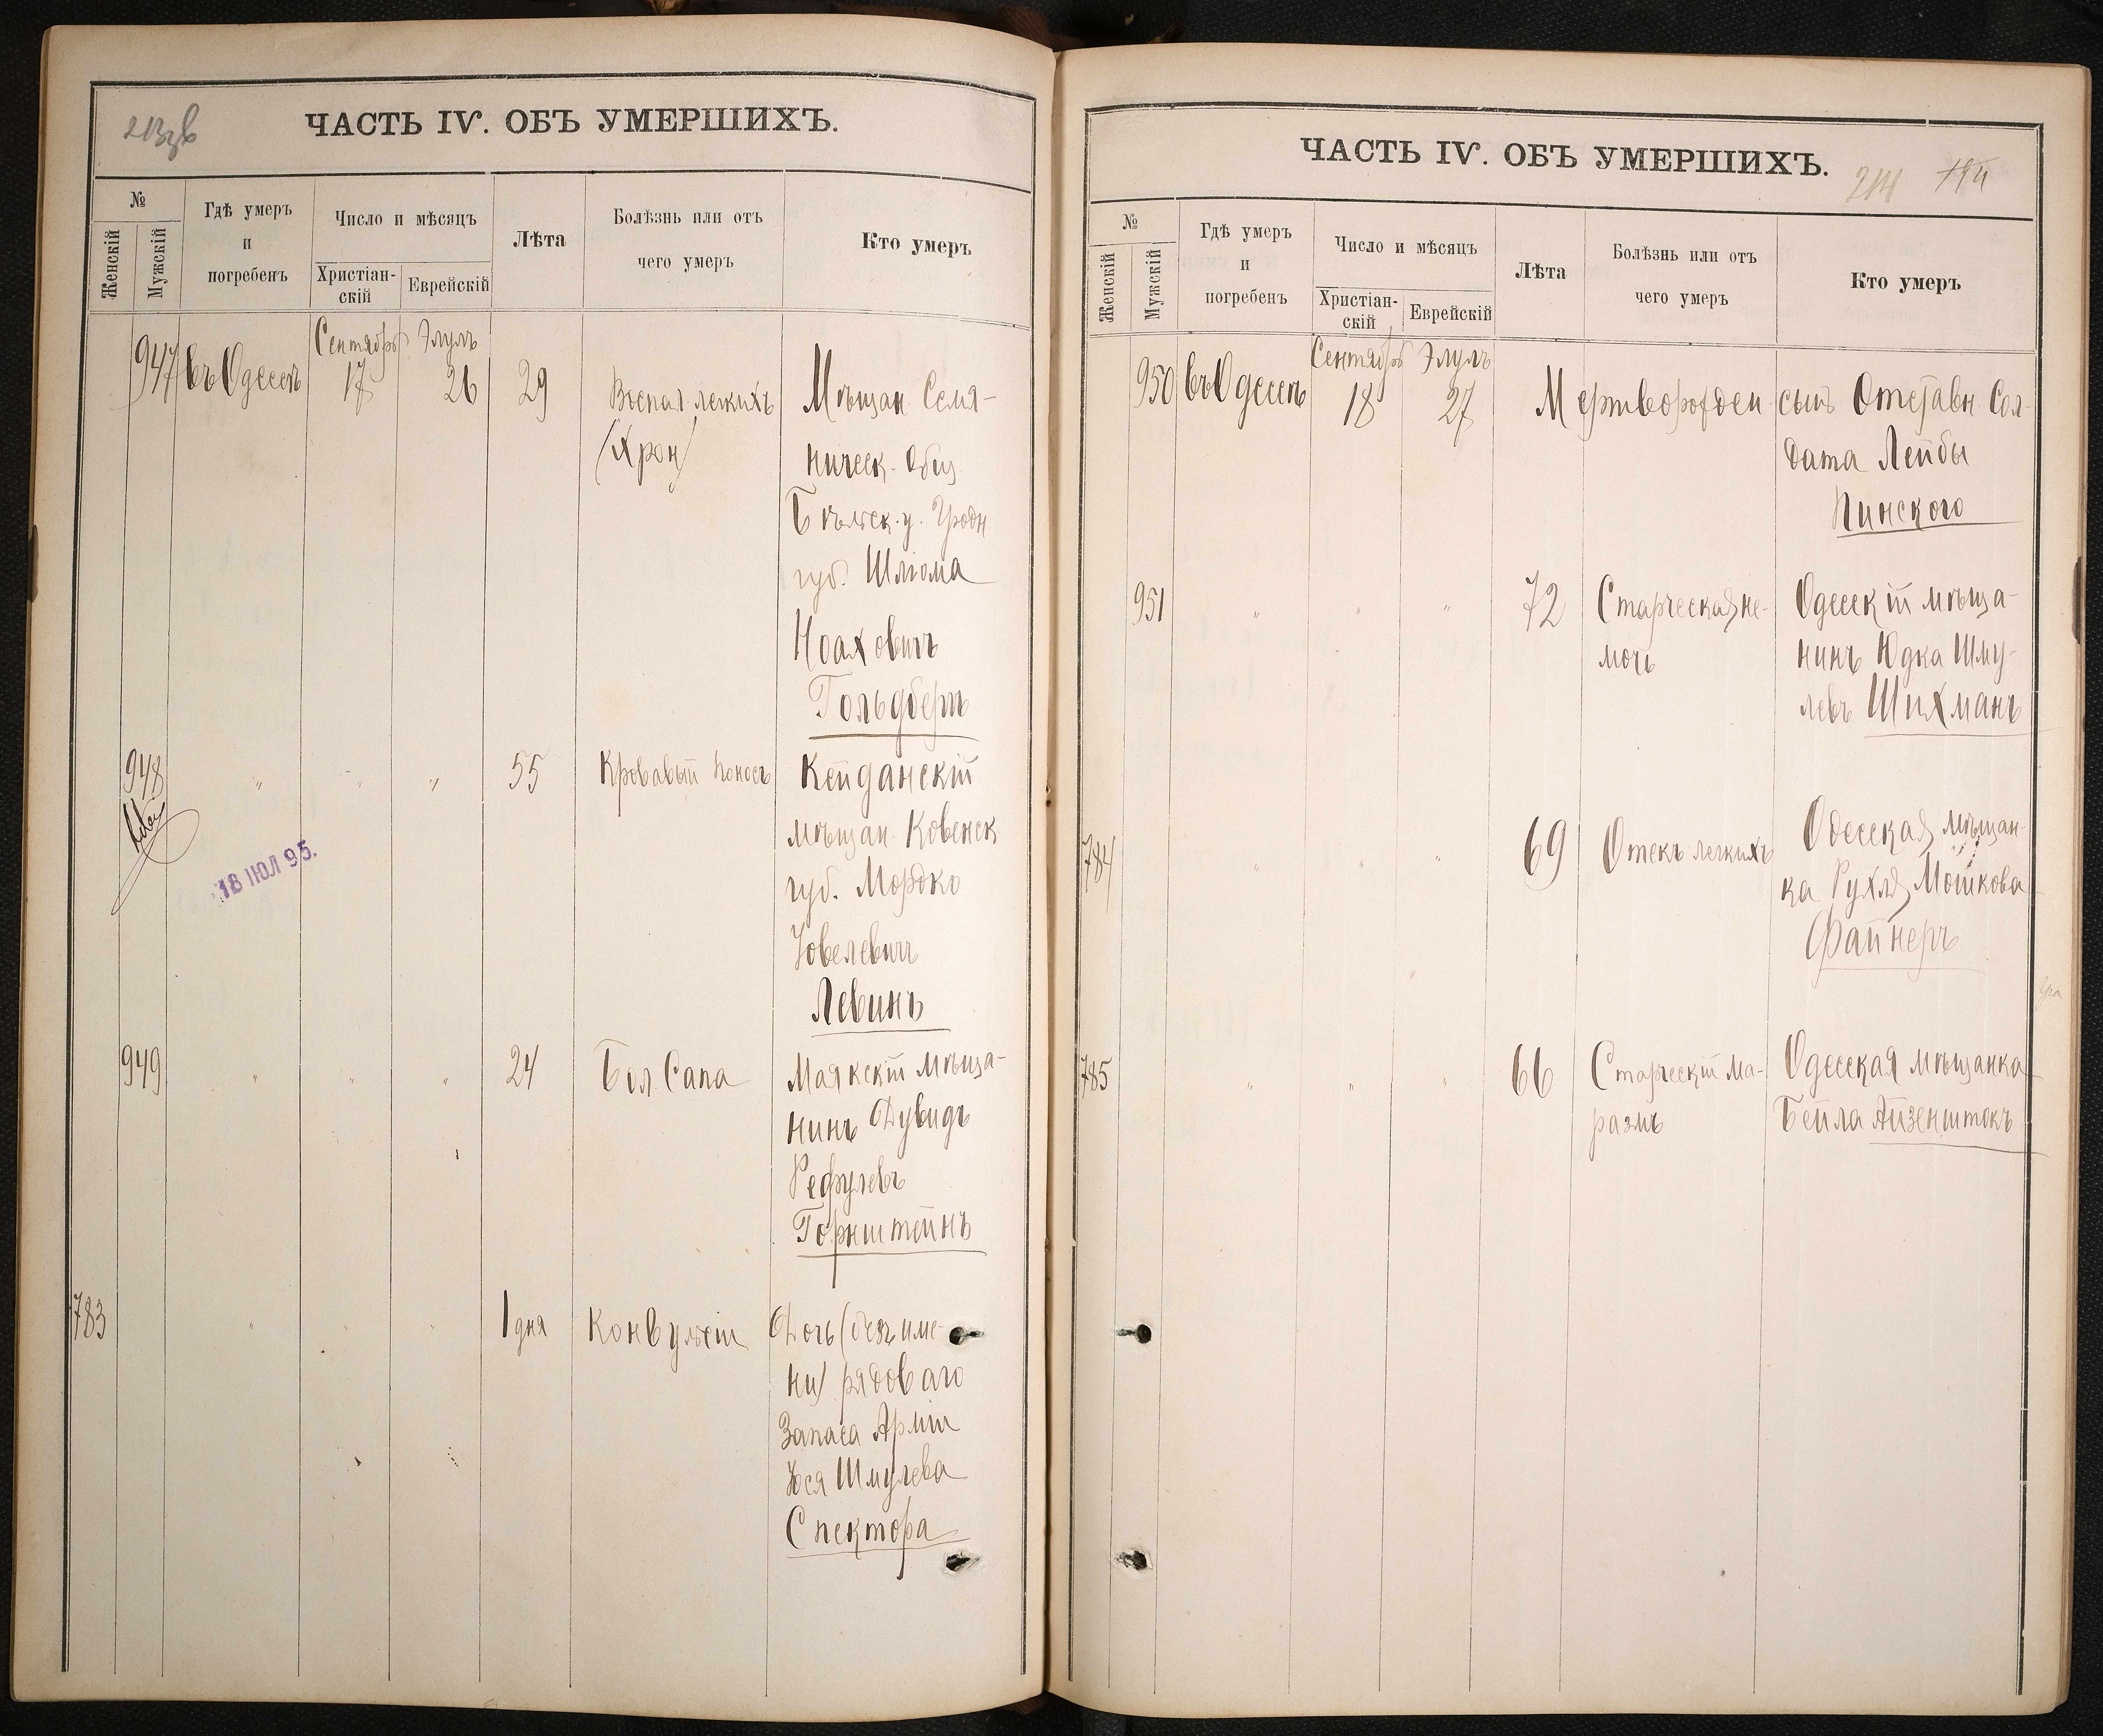 ЧАСТЬ IV. ОБЪ УМЕРШИХЪ.
№
Женскій
Мужскій
Гдѣ умеръ
и
погребенъ
Число и мѣсяцъ
Христіан-
скій
Еврейскій
Лѣта
Болѣзнь или отъ
чего умеръ
Кто умеръ
Сентябрь Элулъ
947 въ Одессѣ 17 26 29 Воспал. легкихъ Мѣщан. Семя-
(Хрон) ническ. Общ
Бѣльск. у. Гродн
губ. Шлома
Ноахович
Гольдберъ
948 " " " 55 Кровавый поносъ Кейданскій
мѣщан. Ковенск
губ. Мордко
Іовелевич
Левинъ
18 ІЮЛ 95.
949 " " " 24 Бол. Сапа Маякскій мѣща-
нинъ Дувидъ
Рефулевъ
Горнштейнъ
783 " " " 1 дня Конвульсіи Дочь (безъ име-
ни) рядоваго
Запаса Арміи
Іося Шмулева
Спектора
ЧАСТЬ IV. ОБЪ УМЕРШИХЪ.
214
№
Женскій
Мужскій
Гдѣ умеръ
и
погребенъ
Число и мѣсяцъ
Христіан-
скій
Еврейскій
Лѣта
Болѣзнь или отъ
чего умеръ
Кто умеръ
Сентябрь Элулъ
950 въ Одессѣ 18 27 Мертворожден. сынъ Отставн. Сол-
дата Лейбы
Пинского
951 " " " 72 Старческая не- Одесскій мѣща-
мочь нинъ Юдка Шму-
левъ Шихманъ
784 " " " 69 Отекъ легкихъ Одесская мѣщан-
ка Рухля Мошкова
Файнеръ
785 " " " 66 Старческій Ма- Одесская мѣщанка
размъ Бейла Айзенштокъ